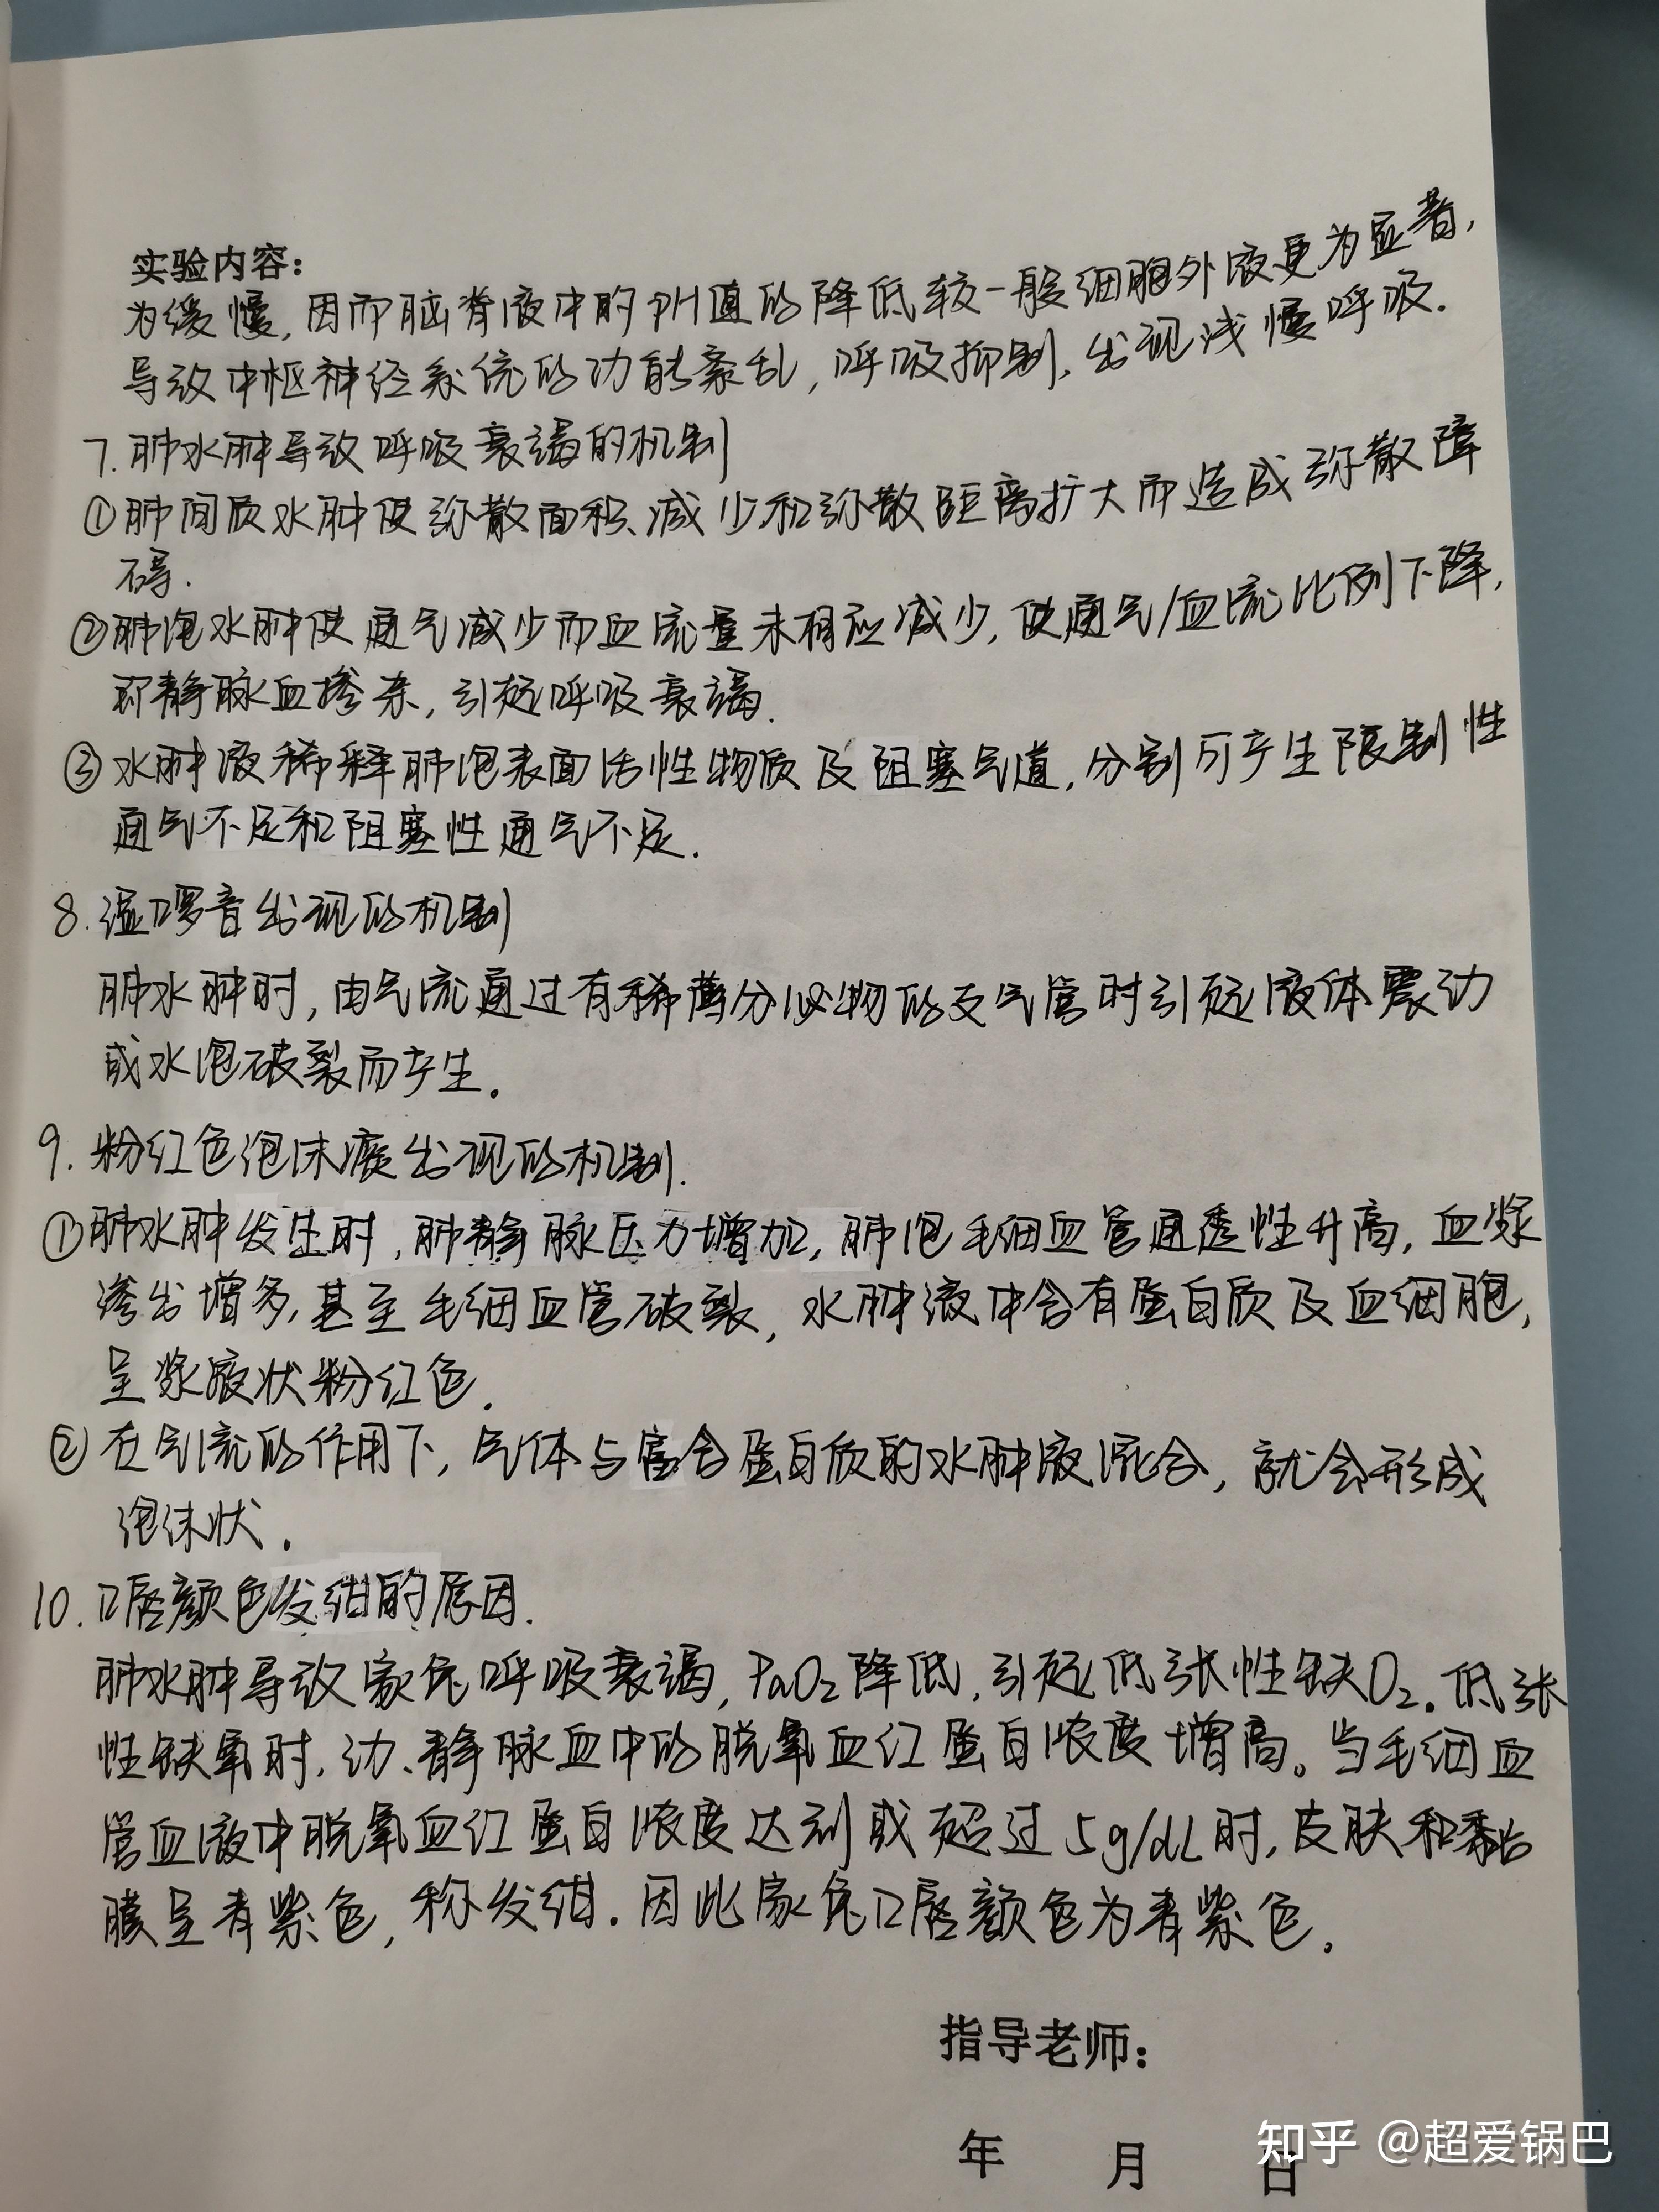 实验内容：
为缓慢，因而脑脊液中的PH值的降低较一般细胞外液更为显著，
导致中枢神经系统的功能紊乱，呼吸抑制，出现浅慢呼吸．
7．肺水肿导致呼吸衰竭的机制
①肺间质水肿使弥散面积减少和弥散距离扩大而造成弥散障
碍．
②肺泡水肿使通气减少而血流量未相应减少，使通气/血流比例下降，
即静脉血掺杂，引起呼吸衰竭．
③水肿液稀释肺泡表面活性物质及阻塞气道，分别可产生限制性
通气不足和阻塞性通气不足．
8．湿啰音出现的机制
肺水肿时，由气流通过有稀薄分泌物的支气管时引起液体震动
或水泡破裂而产生．
9．粉红色泡沫液出现的机制．
①肺水肿发生时，肺静脉压力增加，肺泡毛细血管通透性升高，血浆
渗出增多，甚至毛细血管破裂，水肿液中含有蛋白质及血细胞，
呈浆液状粉红色．
②在气流的作用下，气体与富含蛋白质的水肿液混合，就会形成
泡沫状．
10．口唇颜色发绀的原因．
肺水肿导致家兔呼吸衰竭，PaO₂降低，引起低张性缺O₂。低张
性缺氧时，动、静脉血中的脱氧血红蛋白浓度增高。当毛细血
管血液中脱氧血红蛋白浓度达到或超过5g/dL时，皮肤和黏
膜呈青紫色，称发绀．因此家兔口唇颜色为青紫色．
指导老师：
年 月 日
知乎 @超爱锅巴